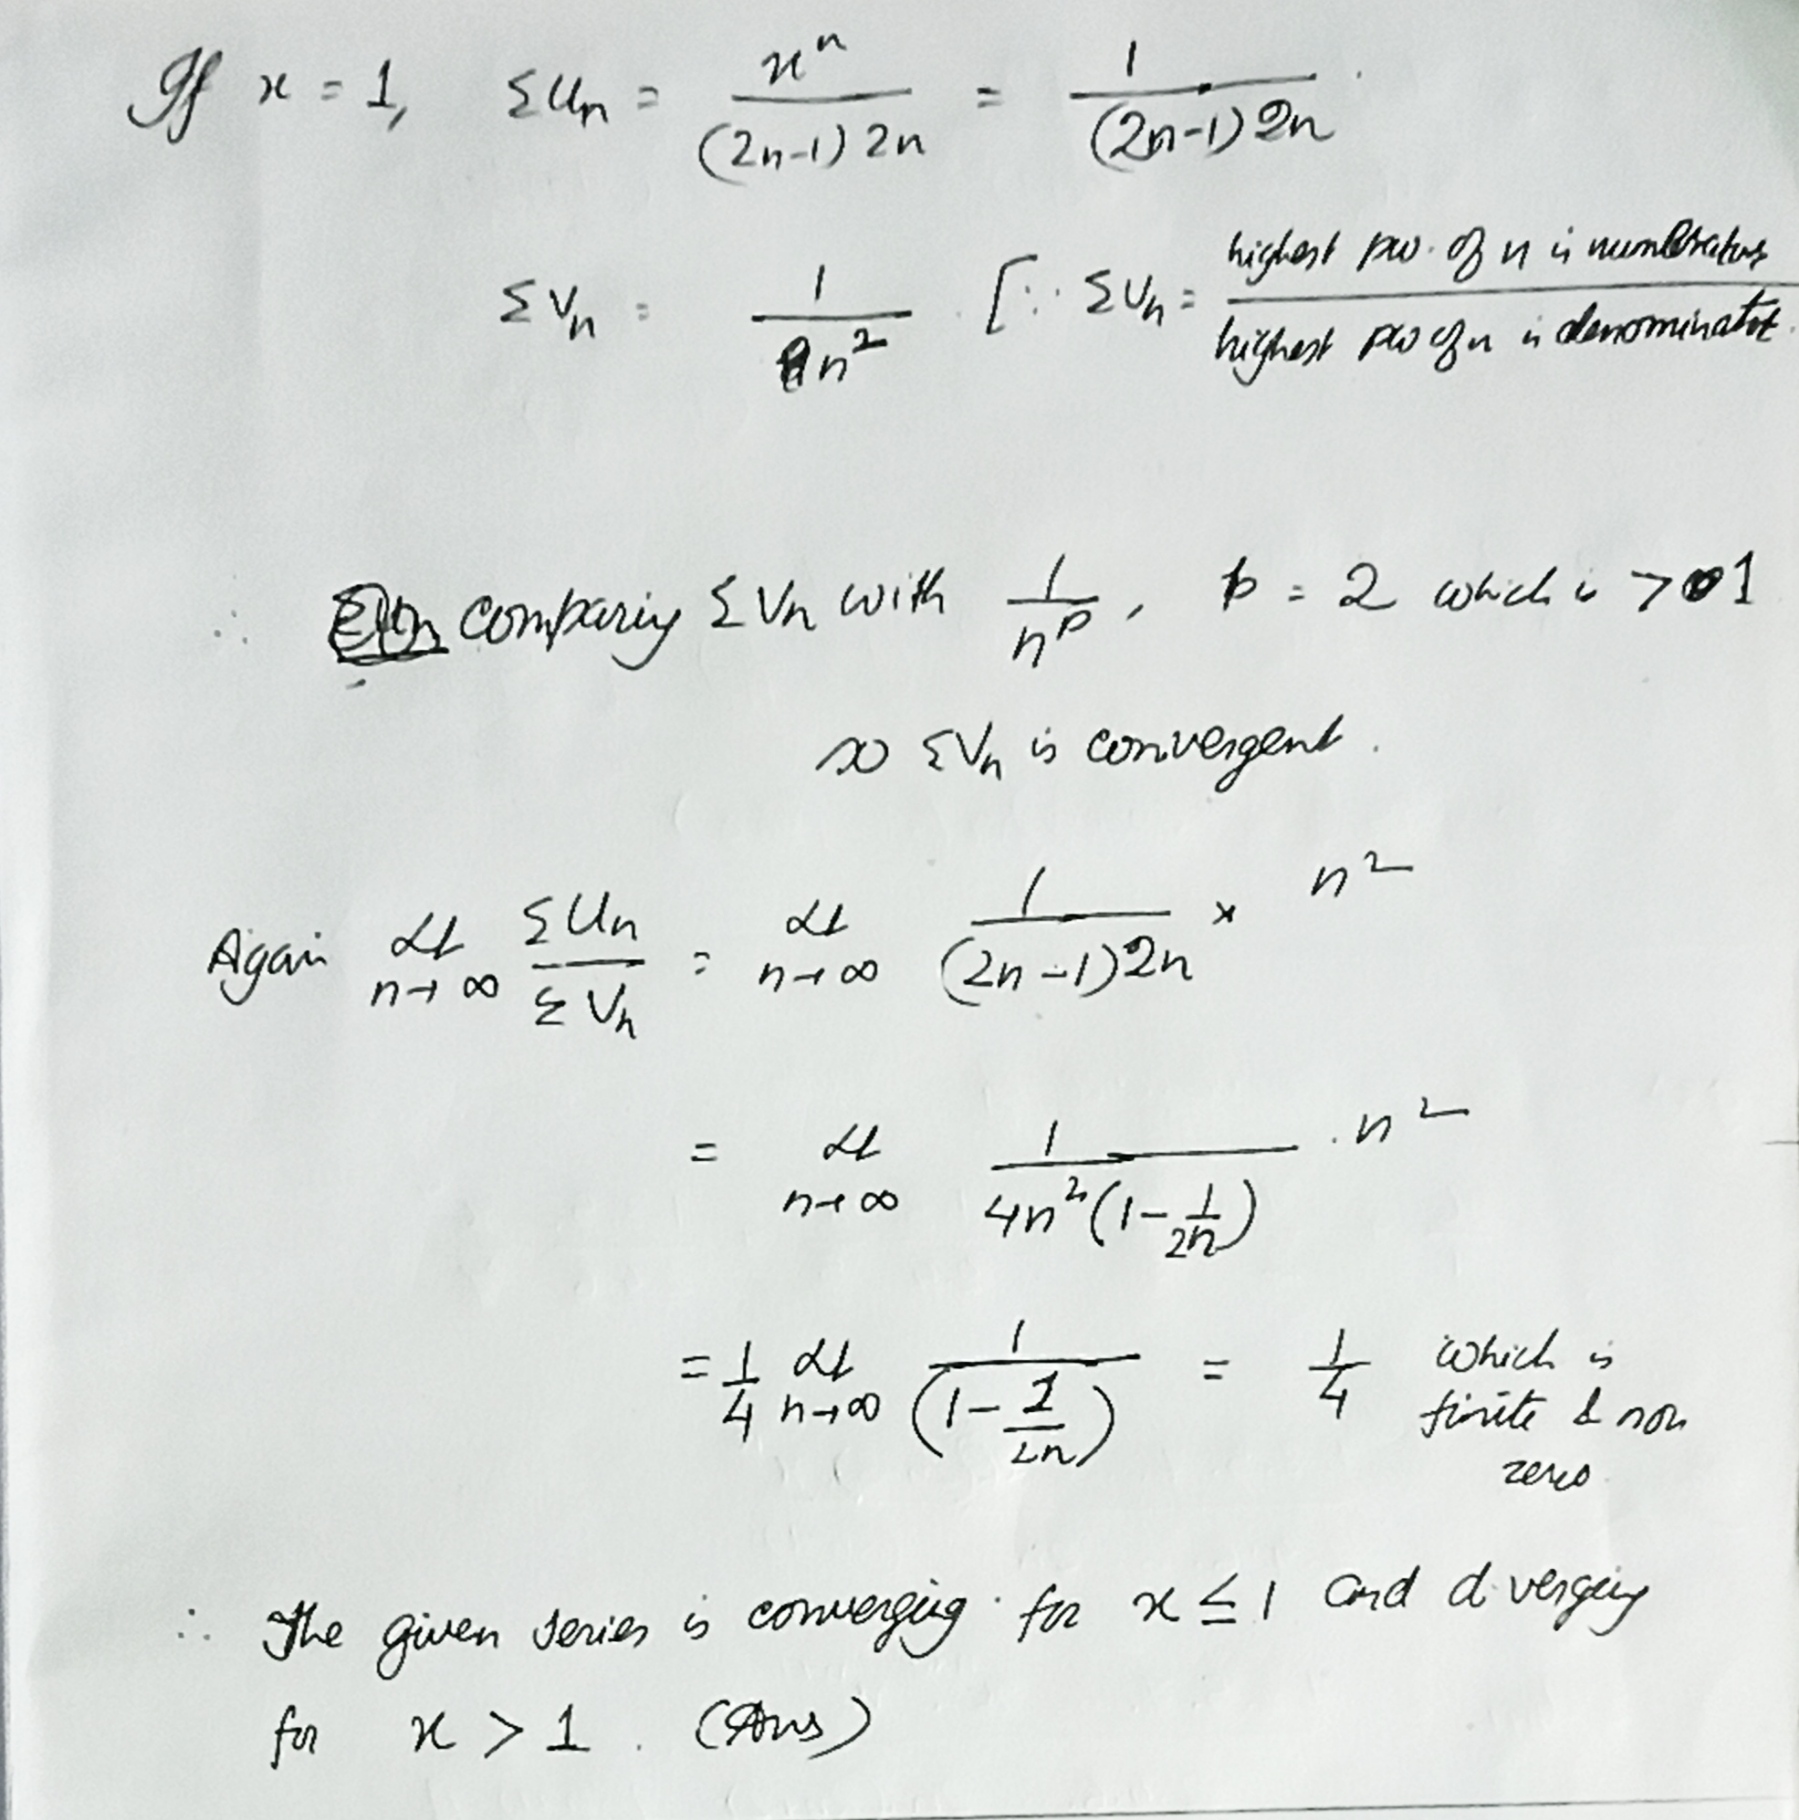 If x = 1, Σun = xⁿ/(2n-1) 2n = 1/(2n-1) 2n
ΣVn = 1/n² [∵ Συn = highest pw. of n is numerator/highest pw of n is denominator.
∴ comparing ΣVn with 1/nᵖ, p = 2 which is > 1
so ΣVn is convergent.
Again Lt n→∞ ΣUn/ΣVn = Lt n→∞ 1/(2n-1)2n × n²
= Lt n→∞ 1/4n²(1-1/2n) . n²
= 1/4 Lt n→∞ 1/(1-1/2n) = 1/4 which is
finite & non
zero.
∴ The given series is converging for x ≤ 1 and diverging
for x > 1. (Ans)